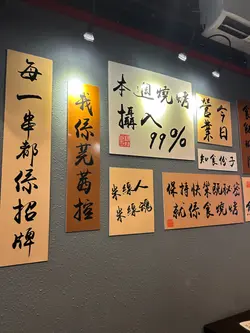 每一串都係招牌
我係芫茜控
本週燒烤
攝入99%
今日
營業
知食份子
米線人
米線魂
保持快樂既秘密
就係食燒烤